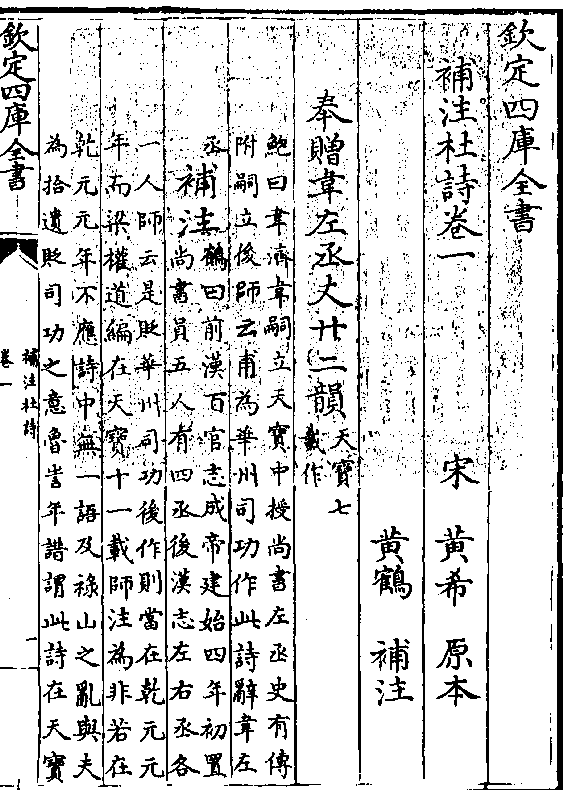 欽定四庫全書
補注杜詩卷一
宋 黄希 原本
黄鶴 補注
奉贈韋左丞丈廿二韻天寶七
載作
鮑曰韋濟韋嗣立天寶中授尚書左丞史有傳
附嗣立後師云甫為華州司功作此詩辭韋左
丞補注鶴曰前漢百官志成帝建始四年初置
尚書員五人有四丞後漢志左右丞各
一人師云是貶華州司功後作則當在乾元元
年而梁權道編在天寶十一載師注為非若在
乾元元年不應詩中無一語及禄山之亂與夫
為拾遺貶司功之意魯訔年譜謂此詩在天寶
欽定四庫全書
補注杜詩
卷一
一